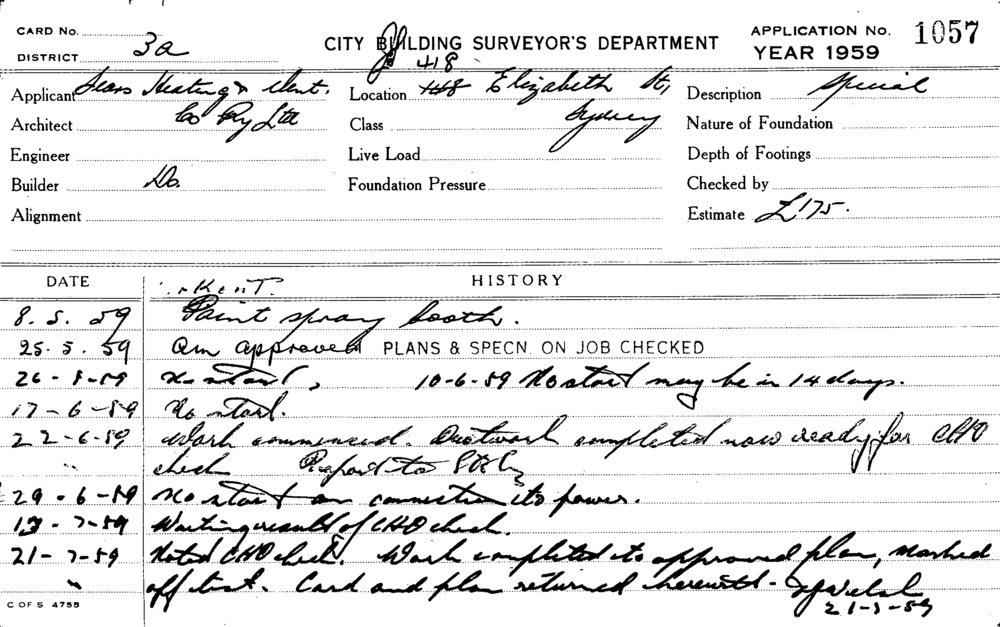 CARD No. APPLICATION No. 1057
DISTRICT 3a CITY BUILDING SURVEYOR'S DEPARTMENT YEAR 1959
418
Applicant Sears Heating & Vent. Location 448 Elizabeth St, Description Special
Architect Co Pty Ltd Class Sydney Nature of Foundation
Engineer Live Load Depth of Footings
Builder Do. Foundation Pressure Checked by
Alignment Estimate £175.
DATE HISTORY
Kent.
8. 5. 59 Paint spray booth.
25. 5. 59 approved PLANS & SPECN. ON JOB CHECKED
26-5-59 No start, 10-6-59 No start may be in 14 days.
17-6-59 No start.
22-6-59 Work commenced. Ductwork completed now ready for CHO
" check Report to
29-6-59 No start on connection to power.
13-7-59 Waiting result of CHO check.
21-7-59 Noted CHO check. Work completed to approved plan, marked
" off list. Card and plan returned herewith - Welsh
C OF S 4755 21-7-59